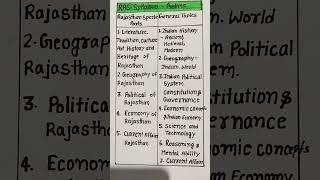 RAS Syllabus - Prelims
Rajasthan Special Parts
General Topics
1. Literature, Tradition, Culture
Art, History and
Heritage of
Rajasthan
2. Geography of
Rajasthan
3. Political of
Rajasthan
4. Economy of
Rajasthan
5. Current Affairs
Rajasthan
1. Indian History -
Ancient,
Medieval,
Modern
2. Geography -
Indian, World
3. Indian Political
System,
Constitution &
Governance
4. Economic concepts
Indian Economy
5. Science and
Technology
6. Reasoning &
Mental Ability
7. Current Affairs
Rajasthan
2. Geography
Rajasthan
3. Political
Rajasthan
4. Economy
World
Political
Constitution &
concepts